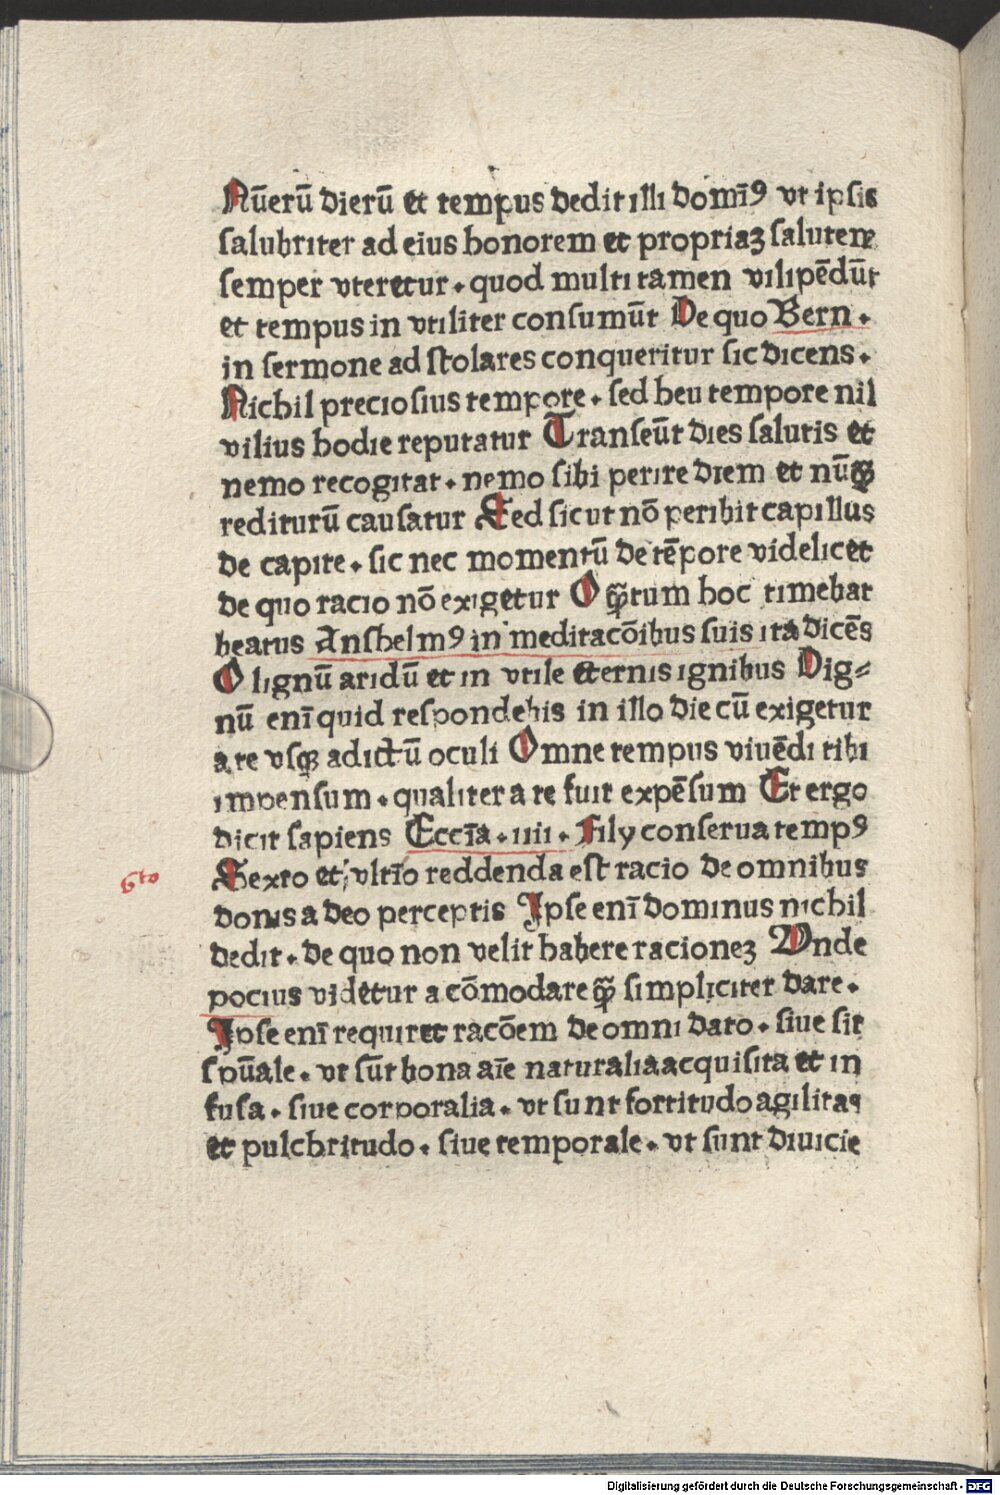 Nūerū dierū et tempus dedit illi domīꝰ vt ipsis
salubriter ad eius honorem et propriaꝫ salutem
semper vteretur. quod multi tamen vilipēdūt
et tempus in vtiliter consumūt De quo Bern.
in sermone ad scolares conqueritur sic dicens.
Nichil preciosius tempore. sed heu tempore nil
vilius hodie reputatur Transeūt dies salutis et
nemo recogitat. nemo sibi perire diem et nūꝙ̄
rediturū causatur Sed sicut nō peribit capillus
de capite. sic nec momentū de tēpore videlicet
de quo racio nō exigetur O ꝙ̄tum hoc timebat
beatus Anshelmꝰ in meditacōibus suis ita dicēs
O lignū aridū et in vtile eternis ignibus Dig⸗
nū enī quid respondebis in illo die cū exigetur
a te vsqꝫ ad ictū oculi Omne tempus viuēdi tibi
impensum. qualiter a te fuit expēsum Et ergo
dicit sapiens Eccīa. iiii. Fily conserua tempꝰ
6to Sexto et vltīo reddenda est racio de omnibus
donis a deo perceptis Ipse enī dominus nichil
dedit. de quo non velit habere racioneꝫ Vnde
pocius videtur acōmodare ꝙ̄ simpliciter dare.
Ipse enī requiret racōem de omni dato. siue sit
spūale. vt sūt bona aīe naturalia acquisita et in
fusa. siue corporalia. vt sunt fortitudo agilitas
et pulchritudo. siue temporale. vt sunt diuicie
Digitalisierung gefördert durch die Deutsche Forschungsgemeinschaft - DFG